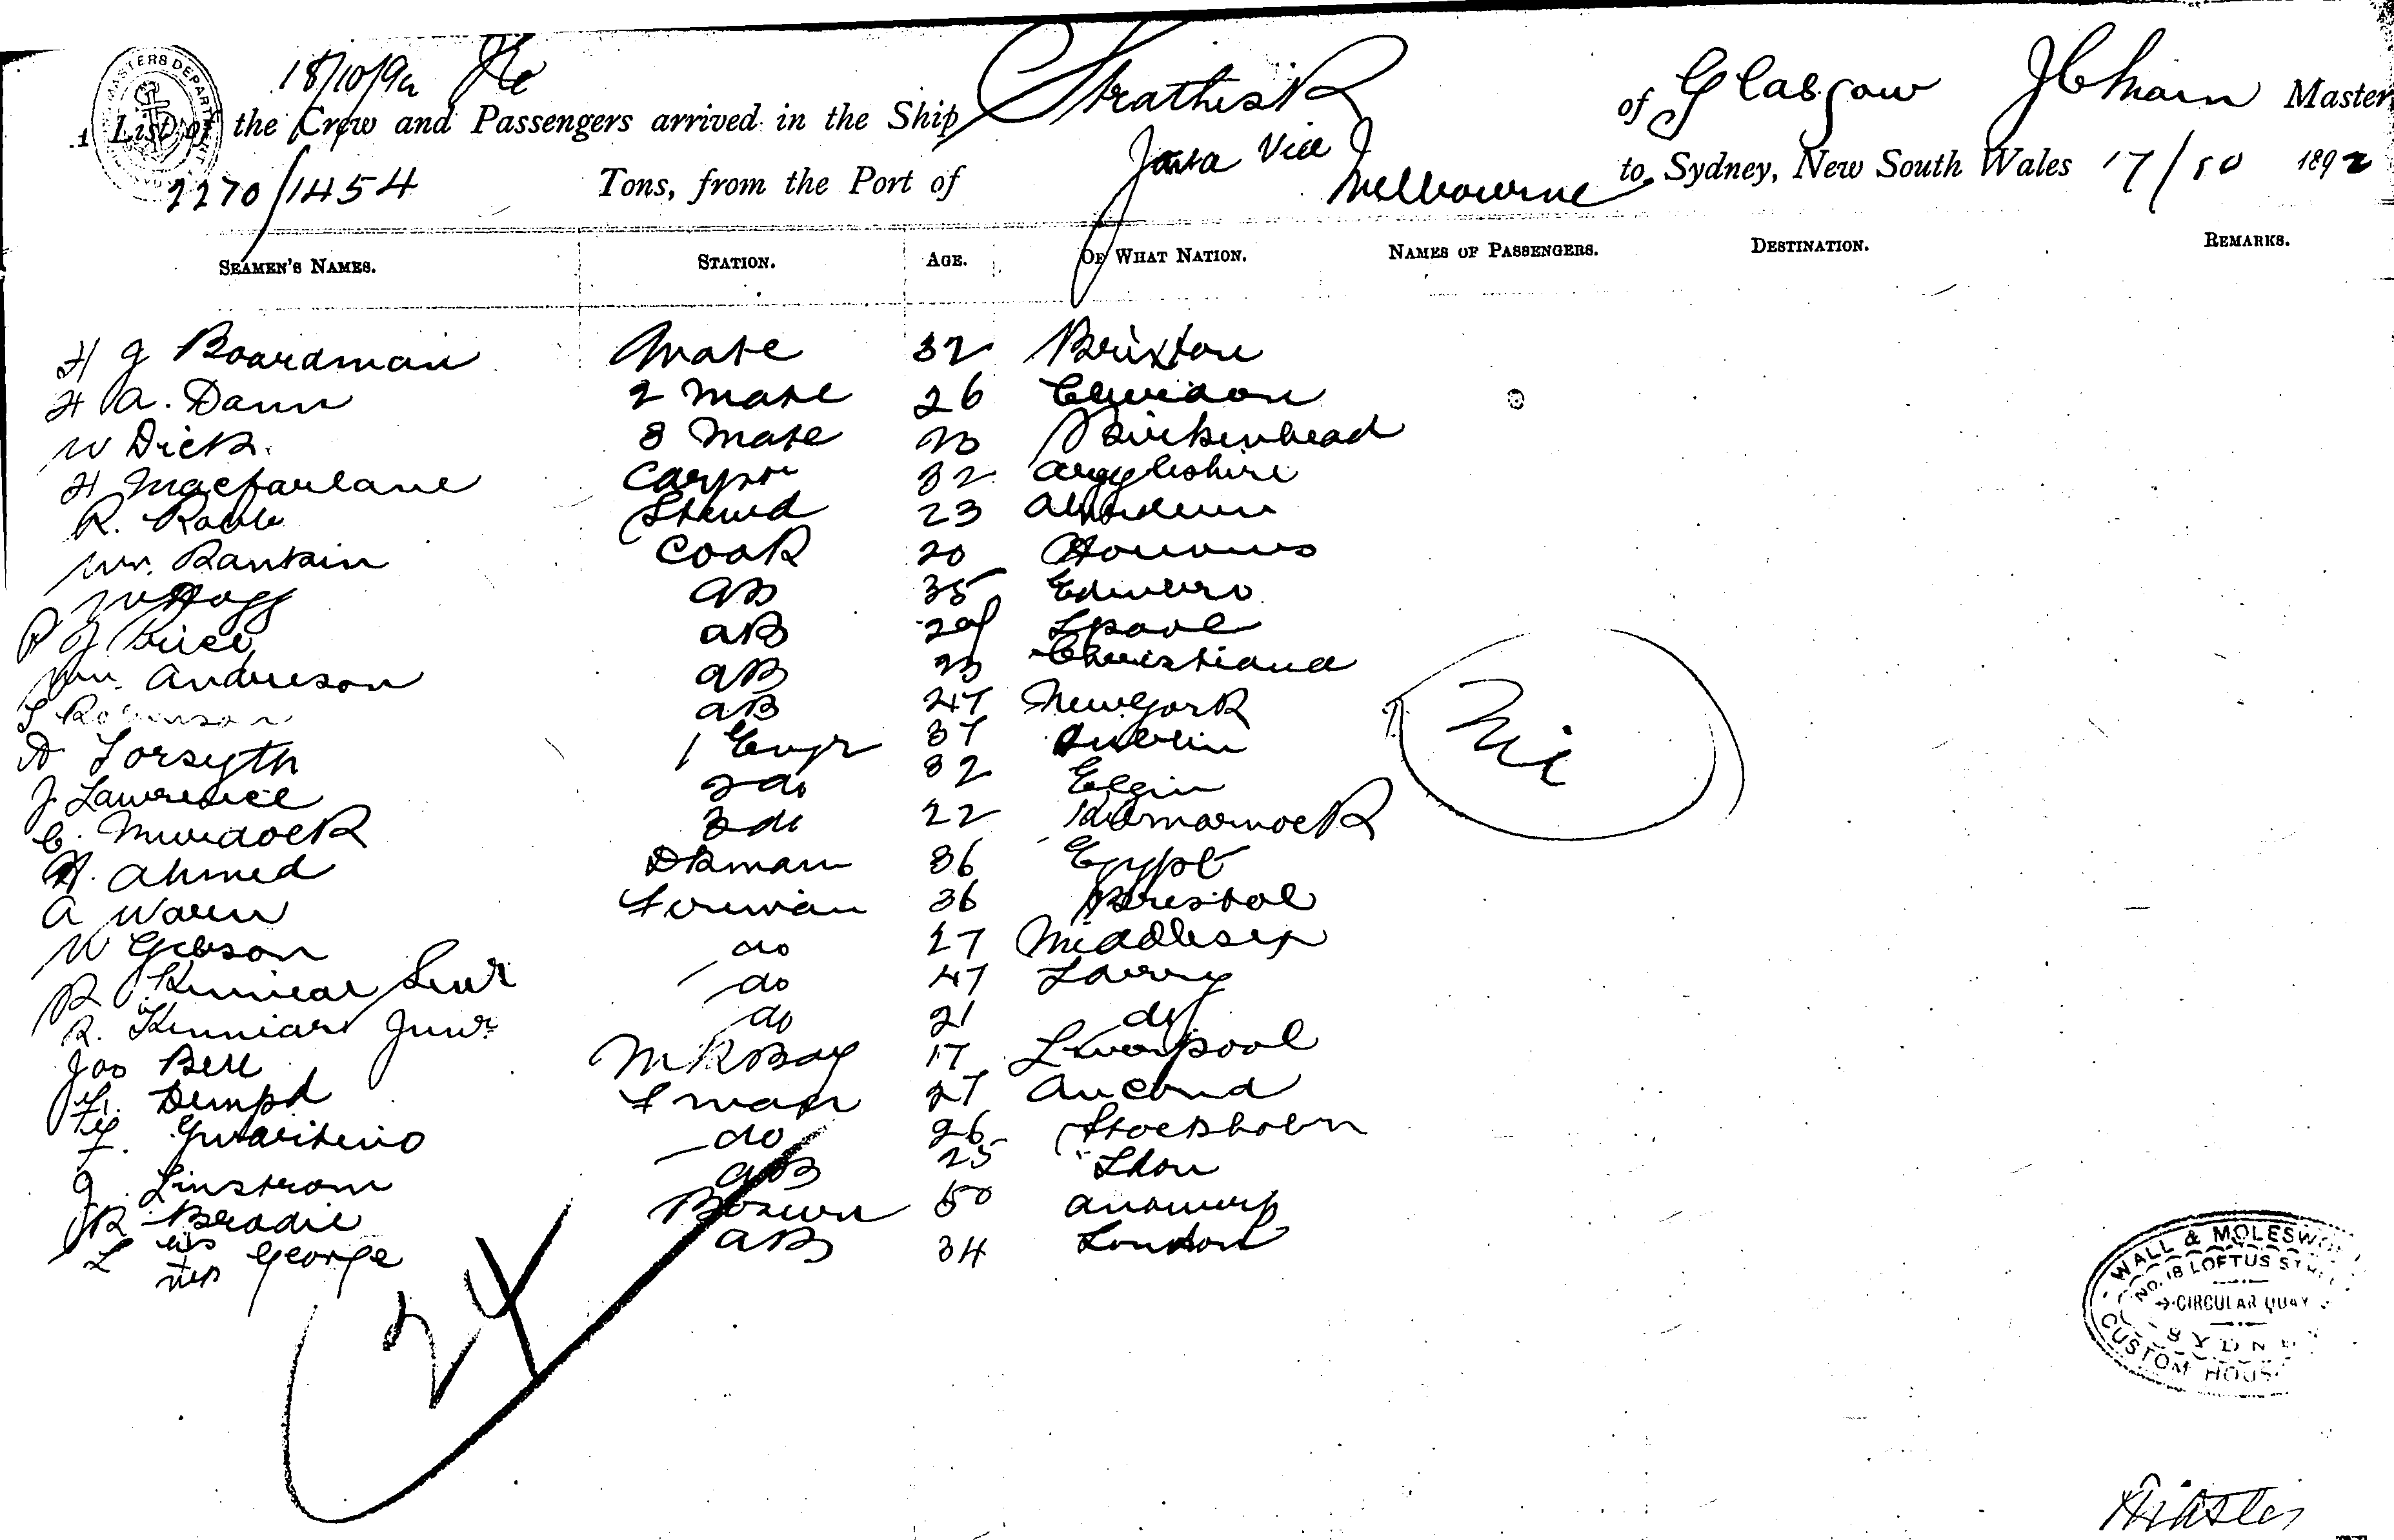 18/10/92
A List of the Crew and Passengers arrived in the Ship Strathesk of Glasgow Master
2270/1454 Tons, from the Port of Java Via Melbourne to Sydney, New South Wales 17/10 1892
SEAMEN'S NAMES. STATION. AGE. OF WHAT NATION. NAMES OF PASSENGERS. DESTINATION. REMARKS.
H G Boardman Mate 32 Brixton
H A. Dann 2 Mate 26 Clevedon
W Dick 3 Mate Birkenhead
H Macfarlane Carptr 32 Argyleshire
R. Robb Stewd 23 Aberdeen
Wm. Rankin Cook 20
W Hogg AB 35 Edinburo
P J Price AB L'pool
Wm. Anderson AB Christiana
S Robinson AB 27 New York
A Forsyth 1 Engr 37 Dublin
J. Lawrence 2 do 32 Elgin
C. Murdock 3 do 22 Kilmarnock
A. Ahmed Dkman 36 Egypt
A Waren Fireman 36 Bristol
W Gibson do 27 Middlesex
R Kinniear Senr do 47
R. Kinniar Junr do 21 do
Jas Bell M R Boy 17 Liverpool
Fr. F man 27 Ancona
F. do 26 Stockholm
G. Linstrom AB 25
R Brodie Bosun 50 Antwerp
L George AB 34 London
Nil
24
WALL & MOLESWO
NO. 18 LOFTUS ST
CIRCULAR QUAY
SYDNE
CUSTOM HOUS